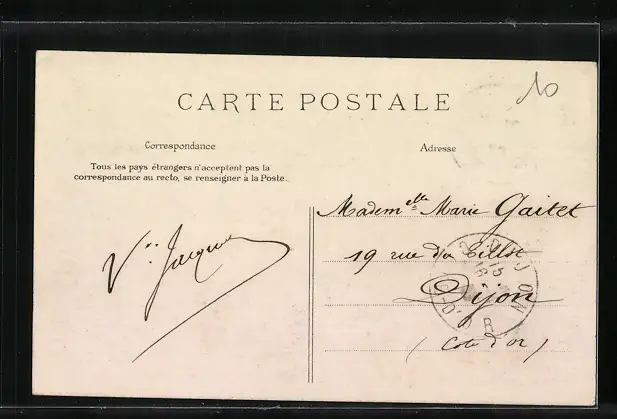 10
CARTE POSTALE
Correspondance
Adresse
Tous les pays étrangers n'acceptent pas la
correspondance au recto, se renseigner à la Poste.
Madem^elle Marie Gaitet
19 rue du Tillot
Dijon
(Côte d'or)
Jacques
DIJON